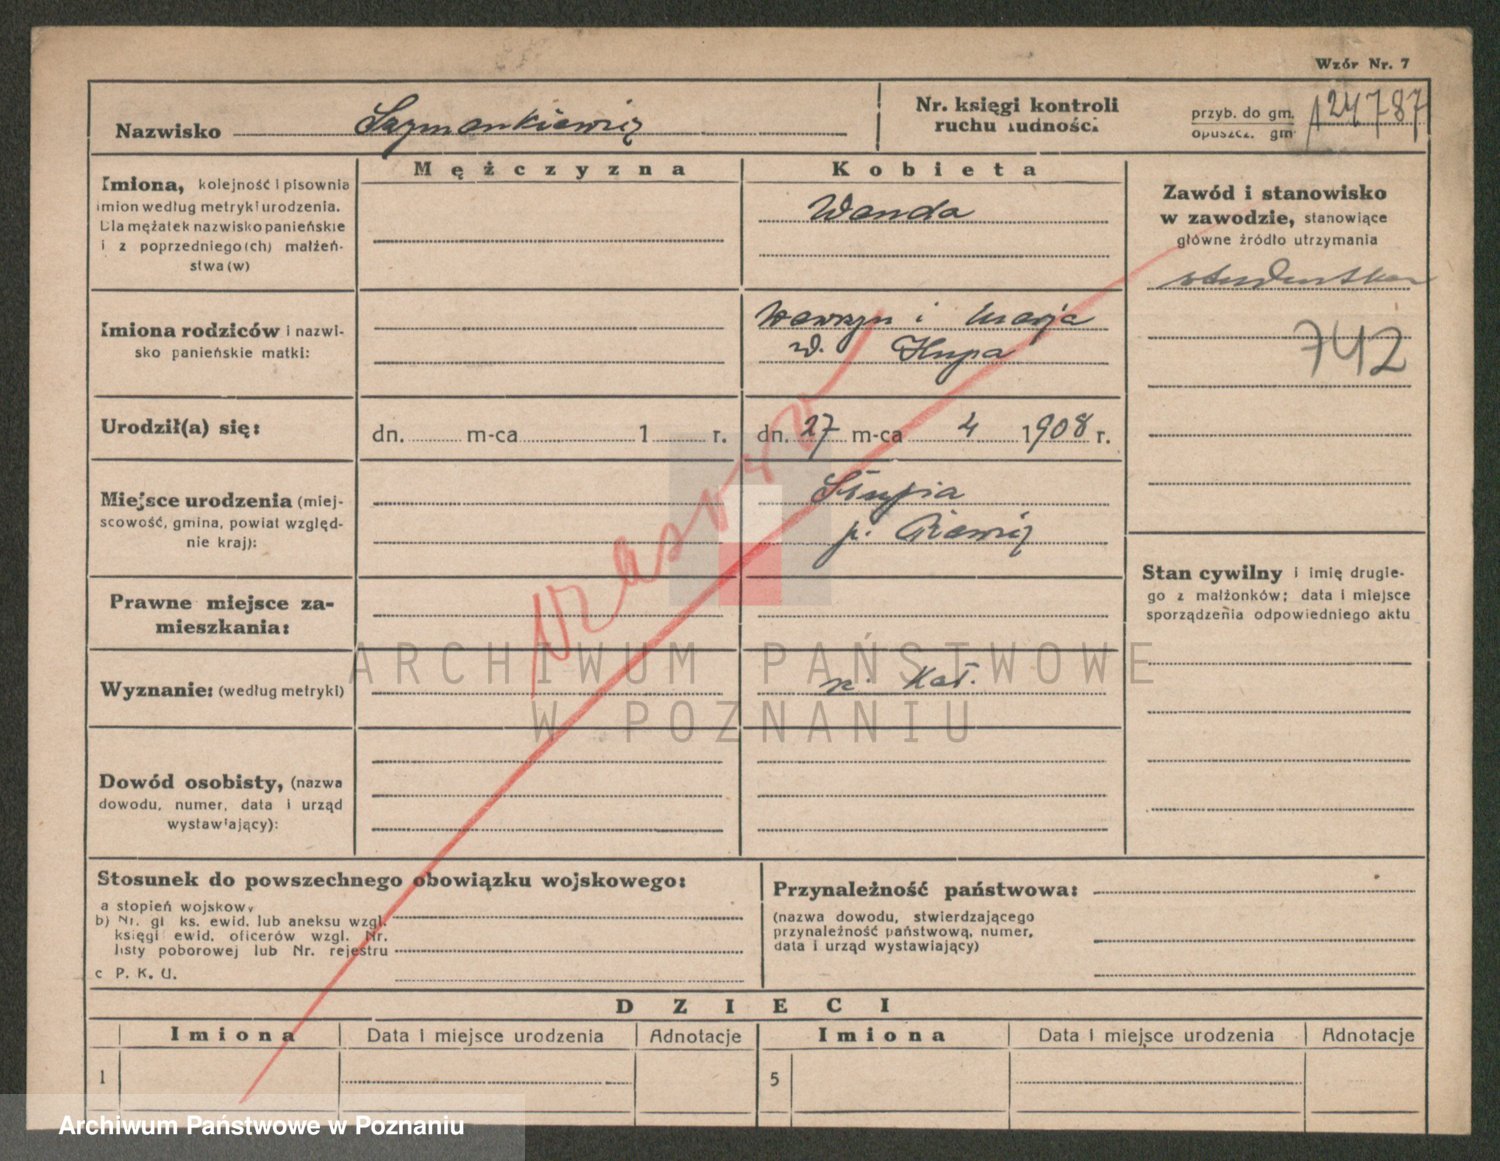 Wzór Nr. 7
Nazwisko Szymankiewicz
Nr. księgi kontroli
ruchu ludności.
przyb. do gm.
opuszcz. gm
24787
Mężczyzna
Kobieta
Imiona, kolejność i pisownia
imion według metryki urodzenia.
Dla mężatek nazwisko panieńskie
i z poprzedniego(ch) małżeń-
stwa(w)
Wanda
Zawód i stanowisko
w zawodzie, stanowiące
główne źródło utrzymania
studentka
742
Imiona rodziców i nazwi-
sko panieńskie matki:
Wawrzyn i Marja
Urodził(a) się:
dn. m-ca 1 r.
dn. 27 m-ca 4 1908 r.
Miejsce urodzenia (miej-
scowość, gmina, powiat względ-
nie kraj):
Słupia
p. Rawicz
Prawne miejsce za-
mieszkania:
Stan cywilny i imię drugie-
go z małżonków; data i miejsce
sporządzenia odpowiedniego aktu
Wyznanie: (według metryki)
r. kat.
Dowód osobisty, (nazwa
dowodu, numer, data i urząd
wystawiający):
Stosunek do powszechnego obowiązku wojskowego:
a stopień wojskowy
b) Nr. gł ks. ewid. lub aneksu wzgl.
księgi ewid. oficerów wzgl. Nr.
listy poborowej lub Nr. rejestru
c P. K. U.
Przynależność państwowa:
(nazwa dowodu, stwierdzającego
przynależność państwową, numer,
data i urząd wystawiający)
DZIECI
Imiona Data i miejsce urodzenia Adnotacje Imiona Data i miejsce urodzenia Adnotacje
1 5
ARCHIWUM PAŃSTWOWE
W POZNANIU
Archiwum Państwowe w Poznaniu